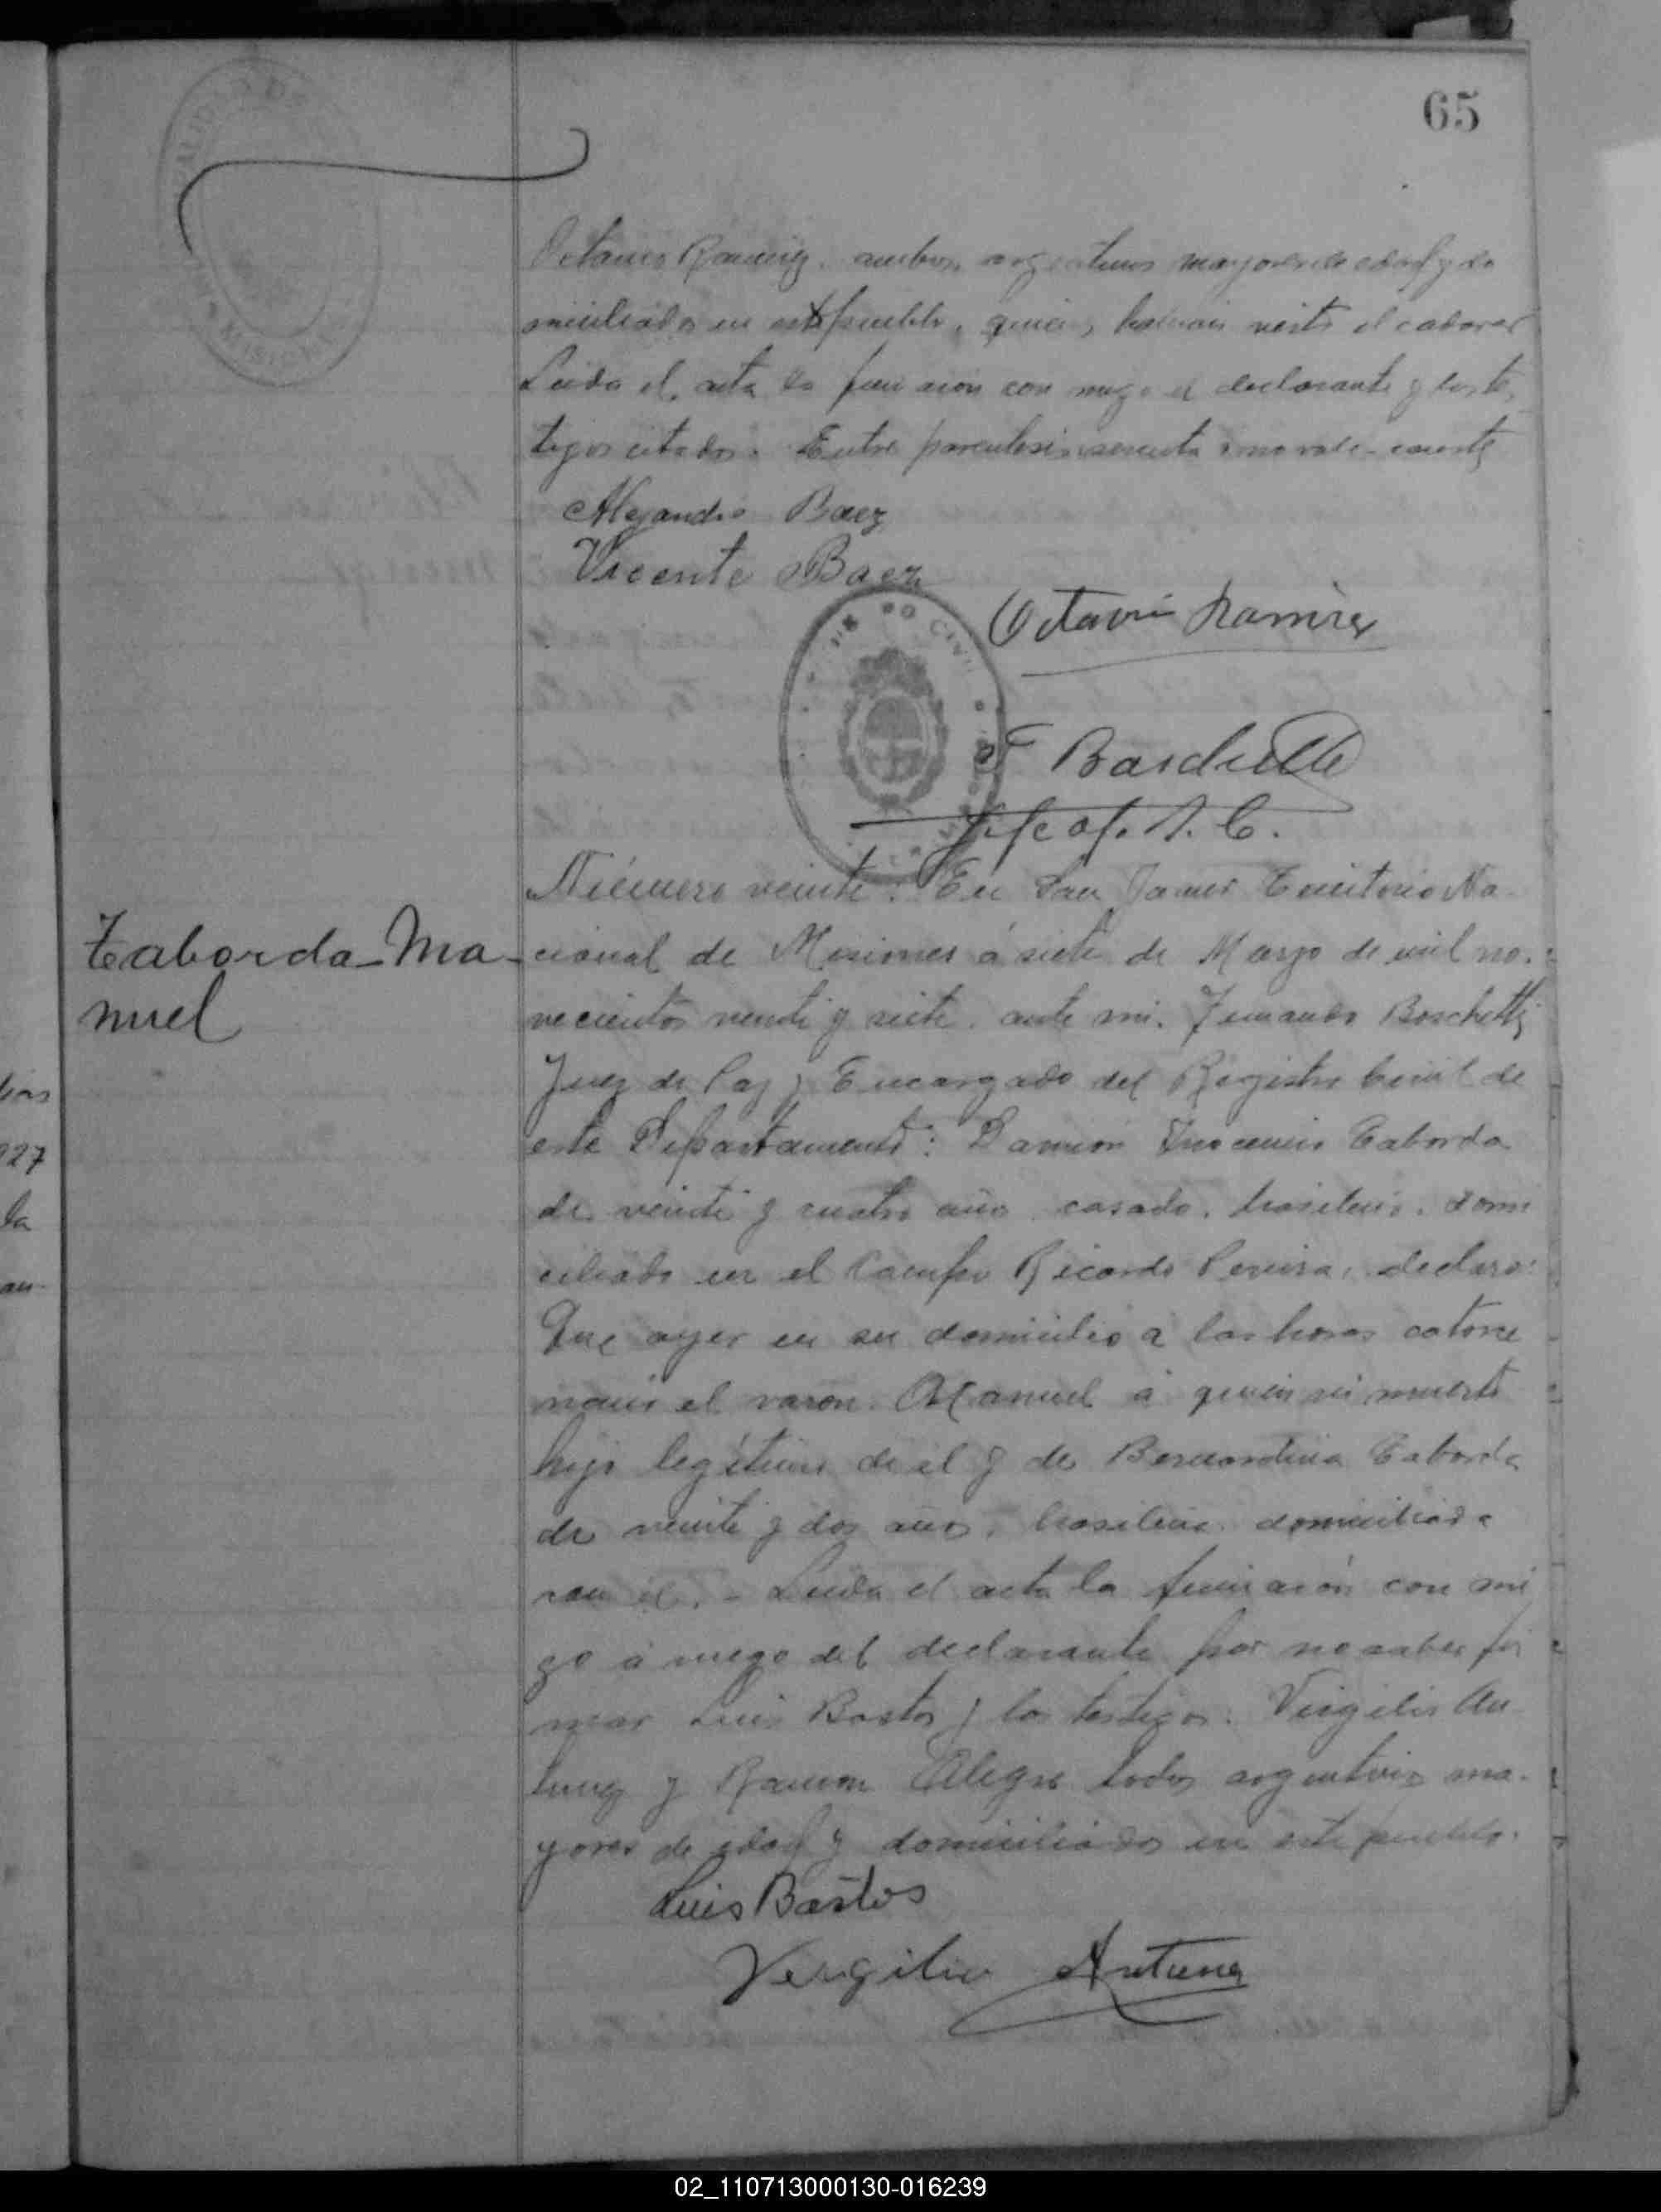 65
Octavio Ramirez, ambos argentinos mayores de edad y do
miciliados en este pueblo, quienes habian visto el cadaver
Leida el acta la firmaron con migo el declarante y los tes
tigos citados. Entre parentesis no vale
Alejandro Baez
Vicente Baez
Octavio Ramirez
F Boschetti
Jefe of. R. C.
Taborda Ma
nuel
Número veinte: En San Javier Territorio Na
cional de Misiones á siete de Marzo de mil no
vecientos veinte y siete, ante mi, Fernando Boschetti
Juez de Paz y Encargado del Registro Civil de
este Departamento: Damion Inocencio Taborda
de veinte y cuatro años, casado, brasilero, domi
ciliado en el Campo Ricardo Pereira, declaro:
Que ayer en su domicilio á las horas catorce
nacio el varon Manuel á quien vi muerto
hijo legítimo de el y de Bernardina Taborda
de veinte y dos años, brasilera, domiciliada
con él. - Leida el acta la firmarón con mi
go á ruego del declarante por no saber fir
mar Luis Bastos y los testigos: Virgilio An
tunez y Ramon Alegre todos argentinos ma
yores de edad y domiciliados en este pueblo.
Luis Bastos
Vergilio Antunez
ias
927
la
an
02_110713000130-016239